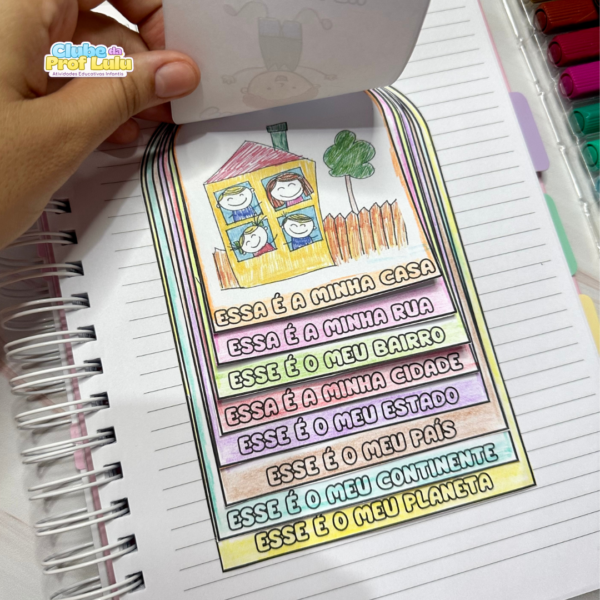 Clube da
Prof Lulu
Atividades Educativas Infantis
ESSA É A MINHA CASA
ESSA É A MINHA RUA
ESSE É O MEU BAIRRO
ESSA É A MINHA CIDADE
ESSE É O MEU ESTADO
ESSE É O MEU PAÍS
ESSE É O MEU CONTINENTE
ESSE É O MEU PLANETA